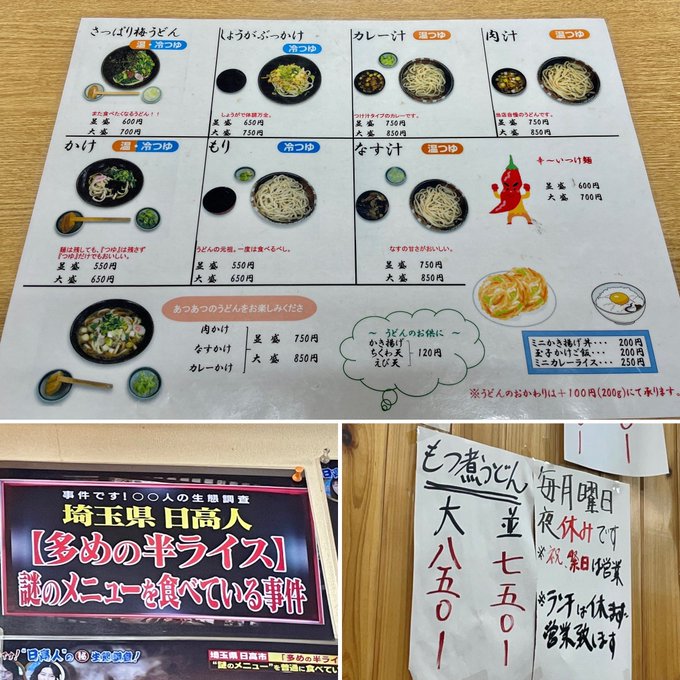 さっぱり梅うどん
温・冷つゆ
また食べたくなるうどん！！
並盛 600円
大盛 700円
しょうがぶっかけ
冷つゆ
しょうがで体調万全。
並盛 650円
大盛 750円
カレー汁
温つゆ
つけ汁タイプのカレーです。
並盛 750円
大盛 850円
肉汁
温つゆ
当店自慢のうどんです。
並盛 750円
大盛 850円
かけ
温・冷つゆ
麺は残しても、『つゆ』は残さず
『つゆ』だけでもおいしい。
並盛 550円
大盛 650円
もり
冷つゆ
うどんの元祖。一度は食べるべし。
並盛 550円
大盛 650円
なす汁
温つゆ
なすの甘さがおいしい。
並盛 750円
大盛 850円
辛〜いつけ麺
並盛 600円
大盛 700円
あつあつのうどんをお楽しみくださ
肉かけ
なすかけ
カレーかけ
並盛 750円
大盛 850円
〜 うどんのお供に 〜
かき揚げ
ちくわ天
えび天
120円
ミニかき揚げ丼･･･ 200円
玉子かけご飯･･･ 200円
ミニカレーライス･･･ 250円
※うどんのおかわりは＋100円(200g)にて承ります。
事件です！○○人の生態調査
埼玉県 日高人
【多めの半ライス】
謎のメニューを食べている事件
"日高人"の㊙生態調査!
埼玉県 日高市
「多めの半ライ
"謎のメニュー"を普通に食べてい
もつ煮うどん
並 七五〇1
大 八五〇1
毎月曜日
夜休みです
※祝祭日は営業
※ランチは休まず
営業致します